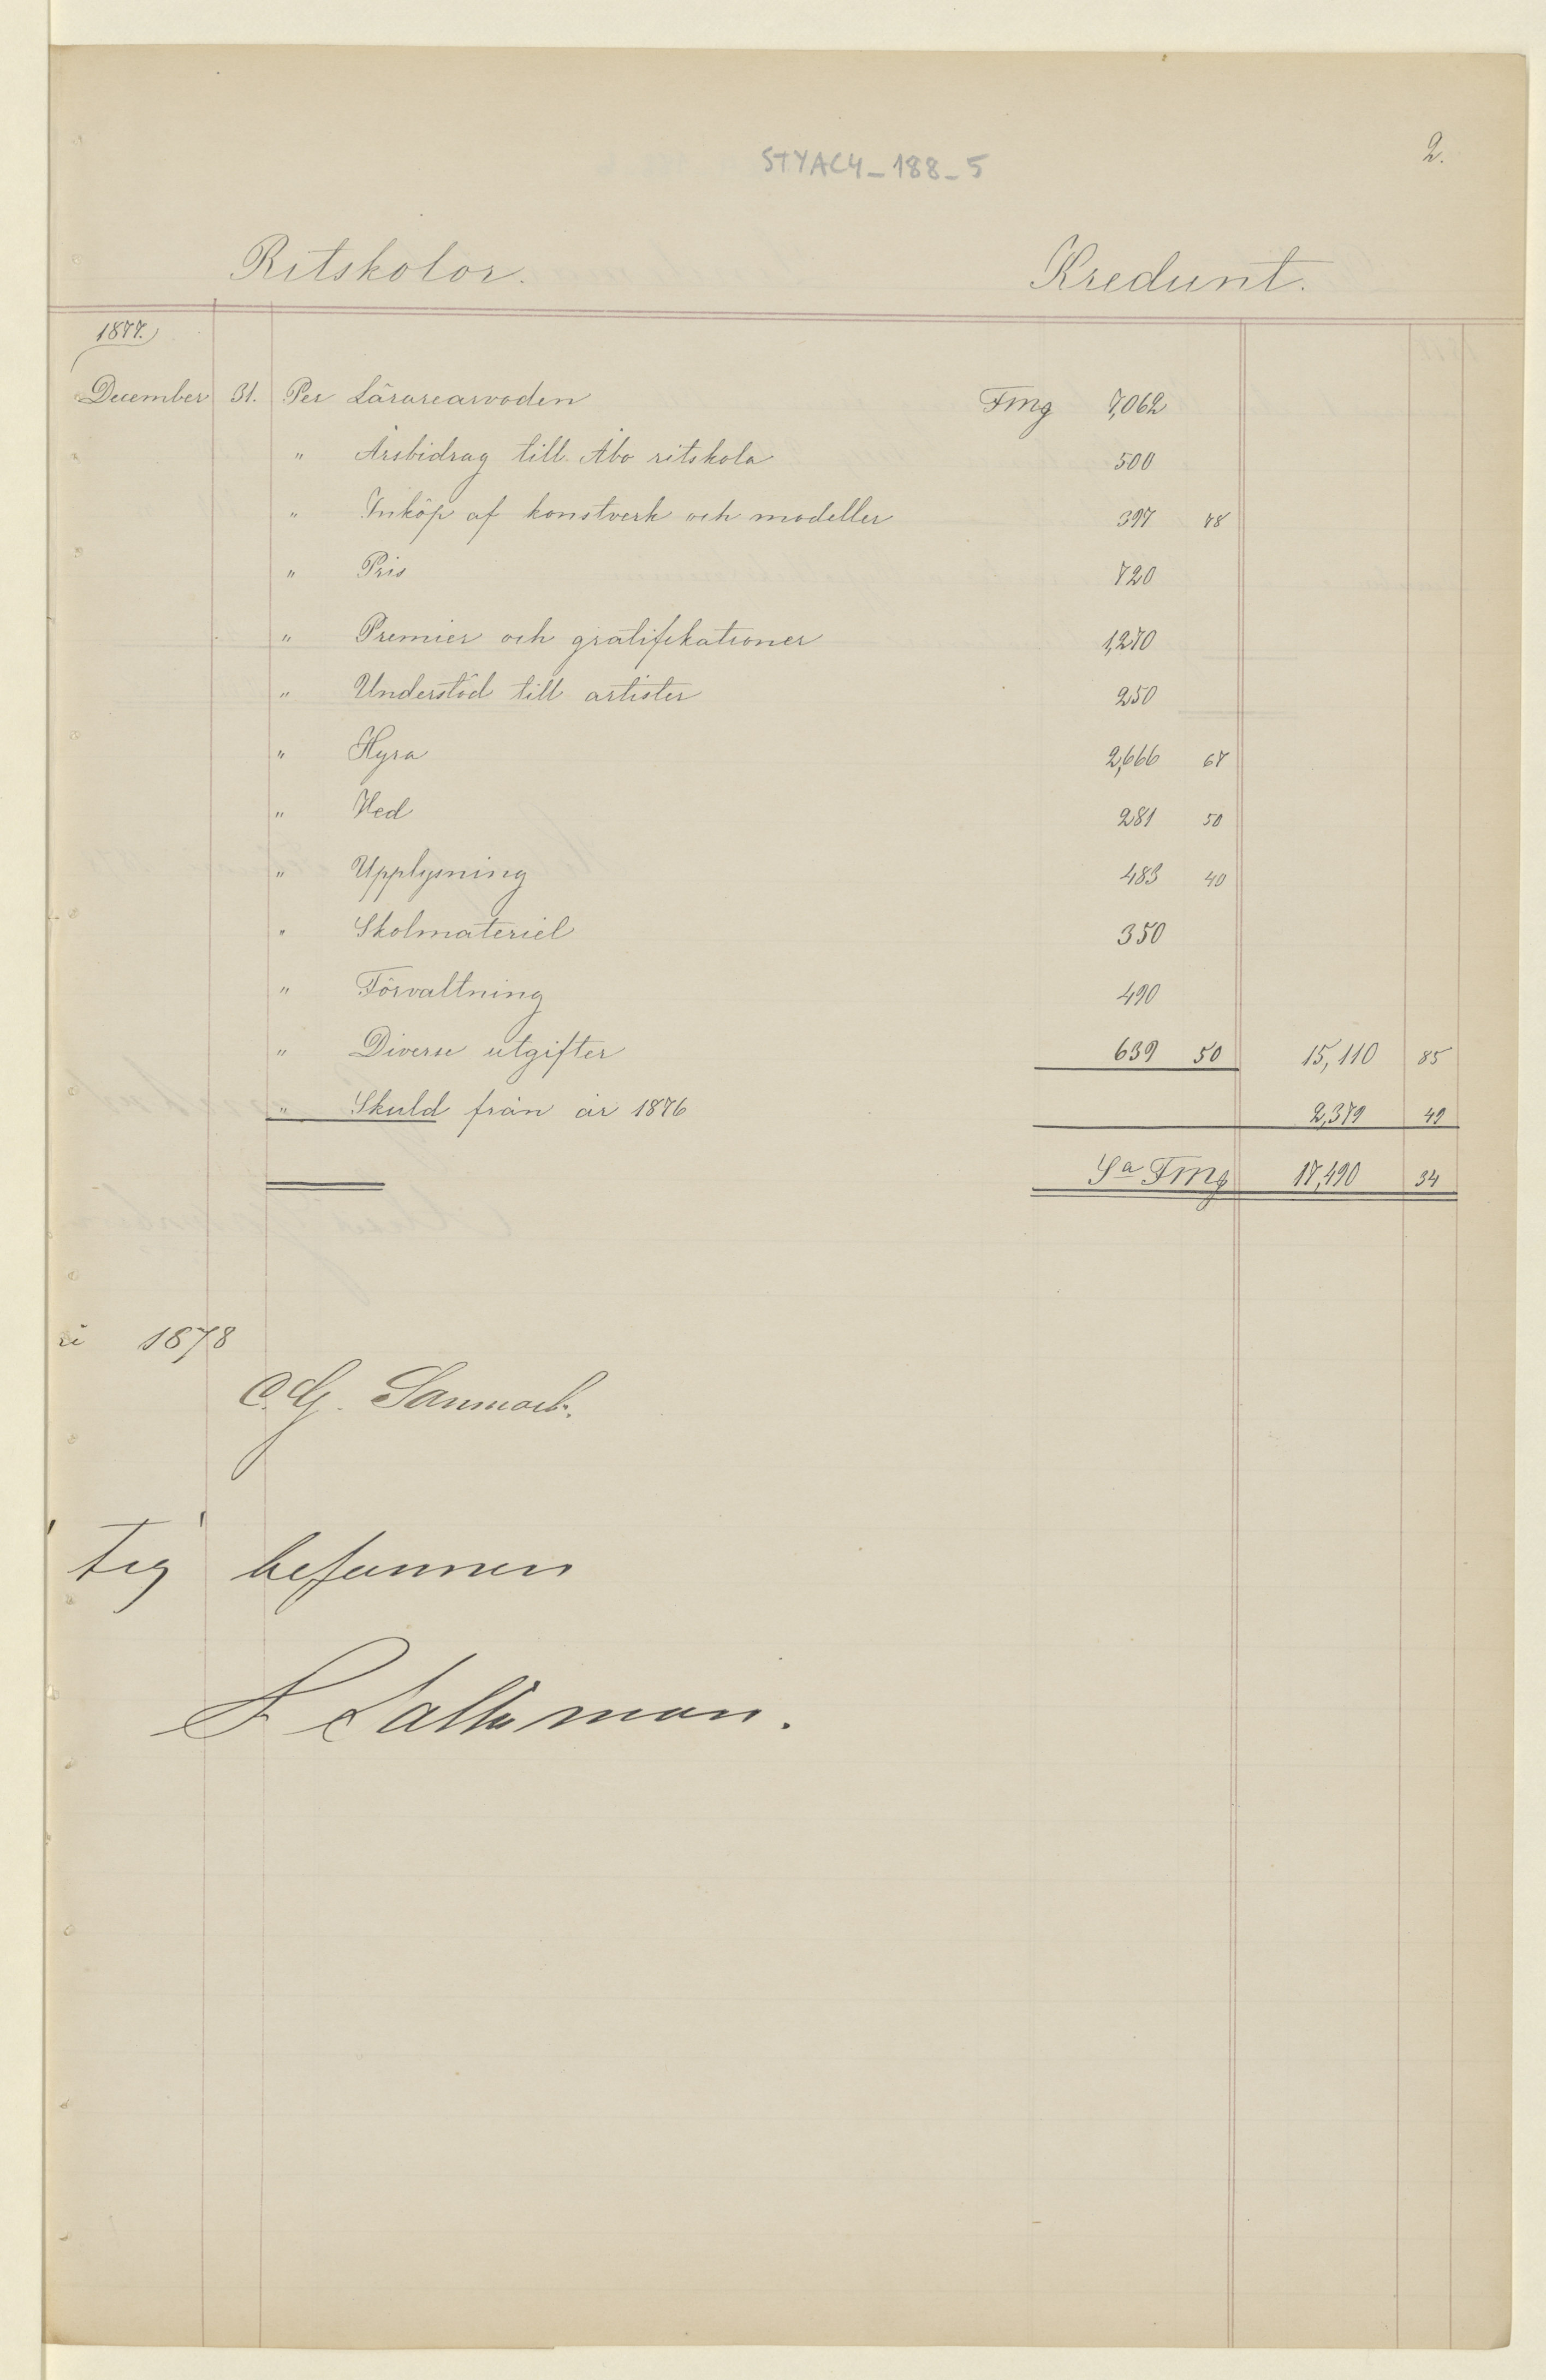 STYAC4_188_5
2.
Ritskolor. Kredunt.
1877.
December 31. Per Lärarearvoden Fmg 7,062
" Årsbidrag till Åbo ritskola 500
" Inköp af konstverk och modeller 397 78
" Pris 720
" Premier och gratifikationer 1,270
" Understöd till artister 250
" Hyra 2,666 67
" Ved 281 50
" Upplysning 483 40
" Skolmateriel 350
" Förvaltning 490
" Diverse utgifter 639 50 15,110 85
" Skuld från år 1876 2,379 49
Sa Fmg 17,490 34
ri 1878
C. G. Sanmark.
tig befunnen